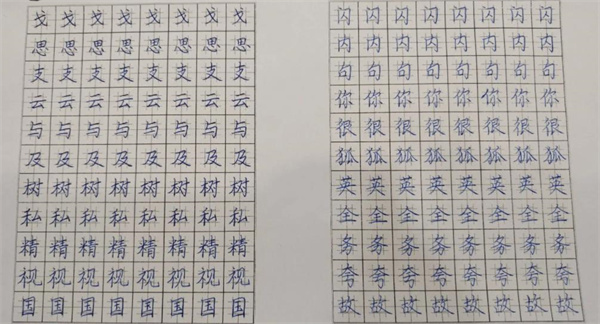 戈戈戈戈戈戈戈戈
思思思思思思思思
支支支支支支支支
云云云云云云云云
与与与与与与与与
及及及及及及及及
树树树树树树树树
私私私私私私私私
精精精精精精精精
视视视视视视视视
国国国国国国国国
闪闪闪闪闪闪闪闪
内内内内内内内内
句句句句句句句句
你你你你你你你你
很很很很很很很很
狐狐狐狐狐狐狐狐
英英英英英英英英
全全全全全全全全
务务务务务务务务
夸夸夸夸夸夸夸夸
故故故故故故故故